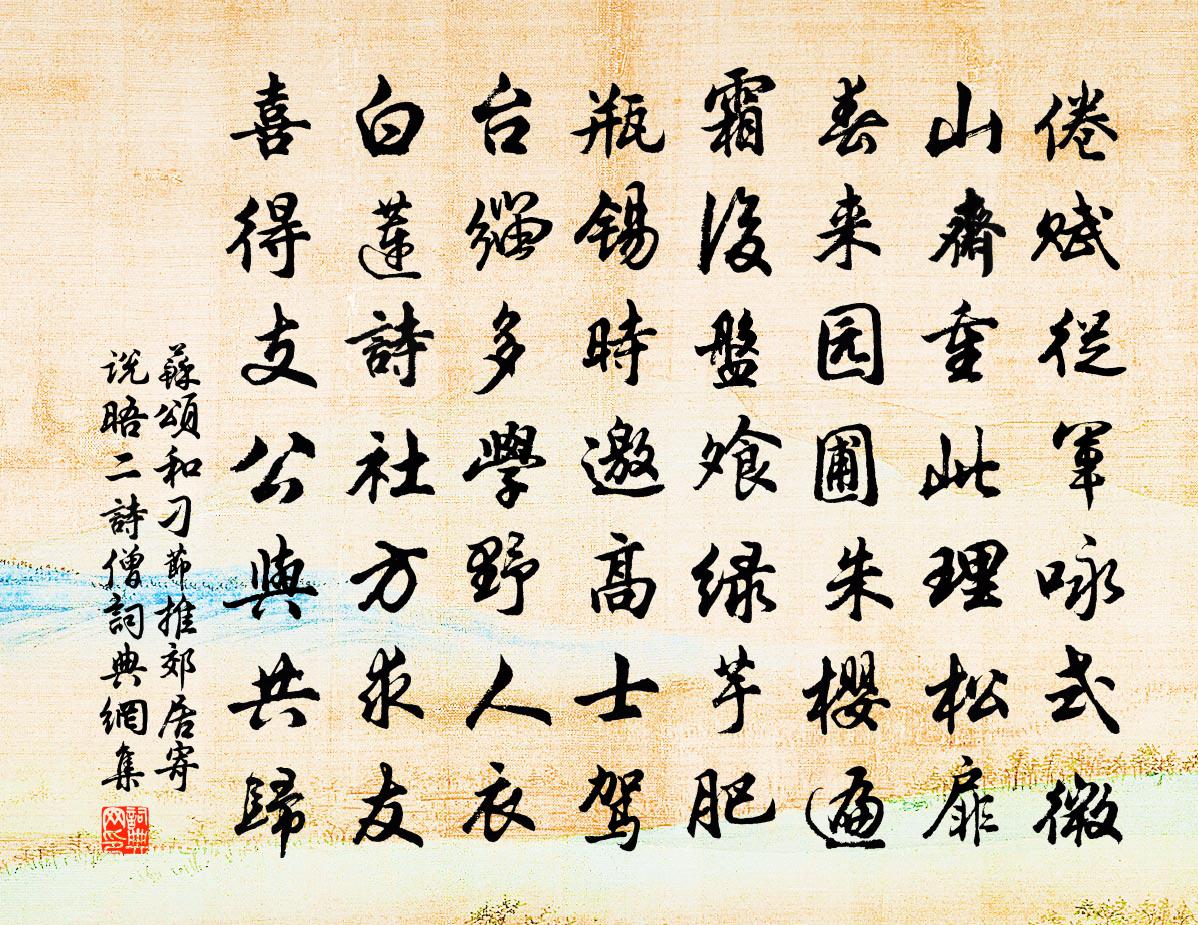 倦赋従军咏式微
山齋重此理松扉
春来园圃朱樱遍
霜後盤飧緑芋肥
瓶锡時邀高士駕
台缁多學野人衣
白蓮詩社方求友
喜得支公與共歸
蘇頌和刁節推郊居寄
説晤二詩僧詞典網集
詞典网印